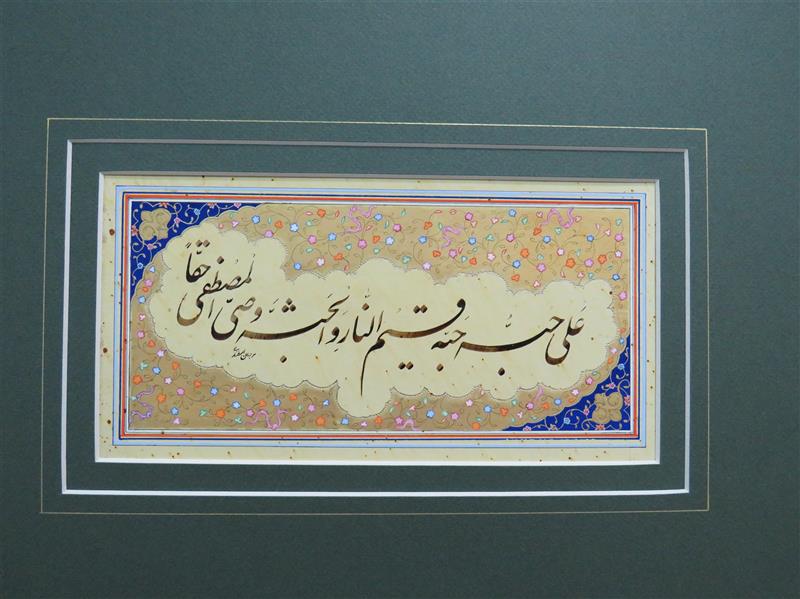 علی حبه جنه قسیم النار و الجنه وصی المصطفی حقاً